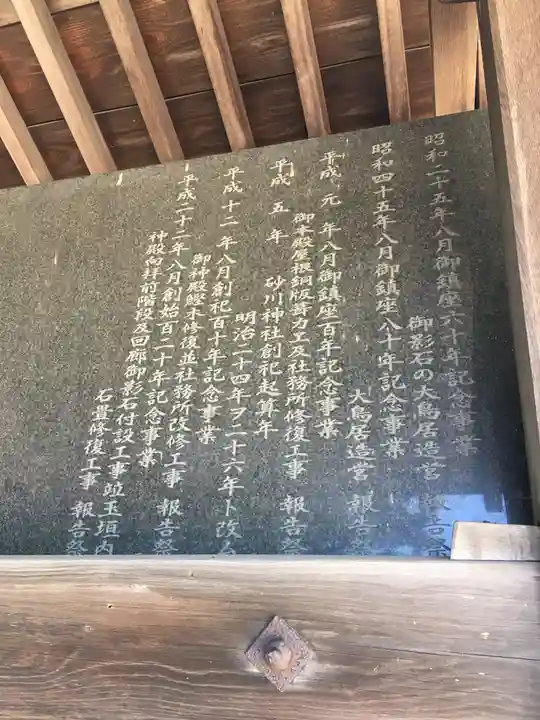 昭和二十五年八月御鎮座六十年記念事業
御影石の大鳥居造営 報告祭
昭和四十五年八月御鎮座八十年記念事業
大鳥居造営 報告祭
平成 元 年八月御鎮座百年記念事業
御本殿屋根銅版葺力工及社務所修復工事 報告祭
平成 五 年 砂川神社創祀起算年
明治二十四年ヲ二十六年ト改ム
平成 十二 年八月創祀百十年記念事業
御神殿鰹木修復並社務所改修工事 報告祭
平成二十二年八月創始百二十年記念事業
神殿向拝前階段及回廊御影石付設工事並玉垣内
石畳修復工事 報告祭